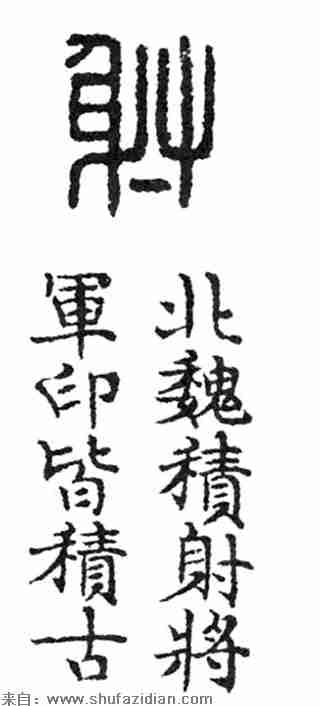 射
北魏積射將
軍印皆積古
来自：www.shufazidian.com